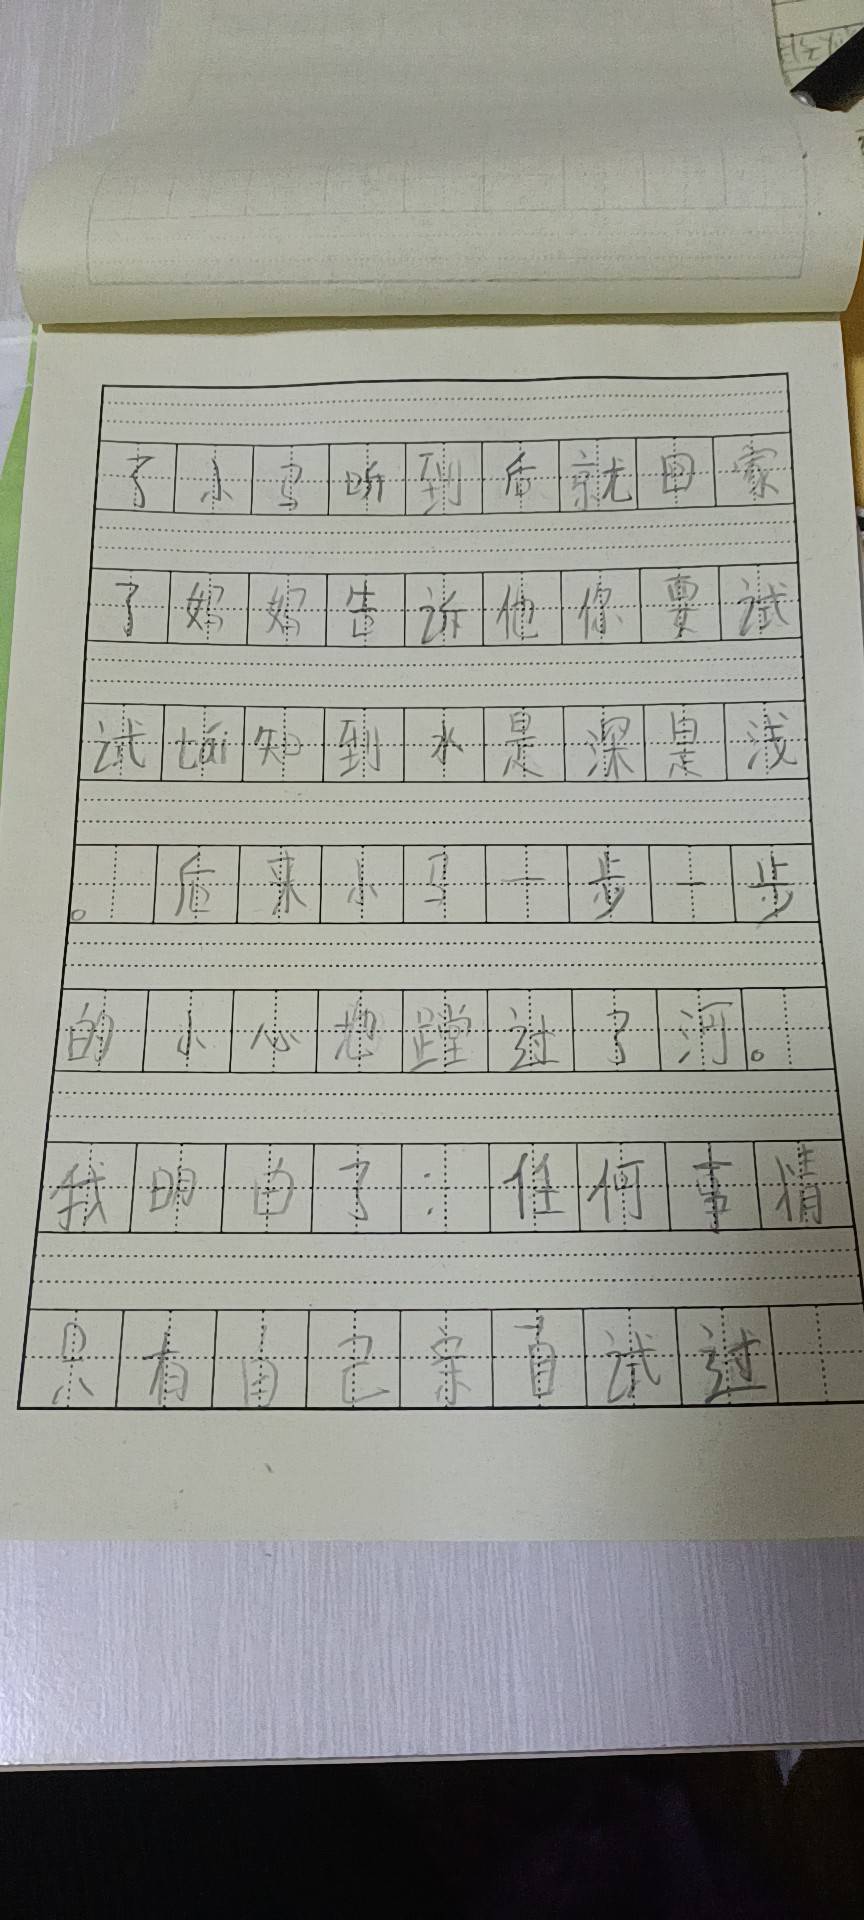 了小马听到后就回家
了妈妈告诉他你要试
试tái知到水是深是浅
。后来小马一步一步
的小心忩蹚过了河。
我明白了：任何事情
只有自己亲自试过